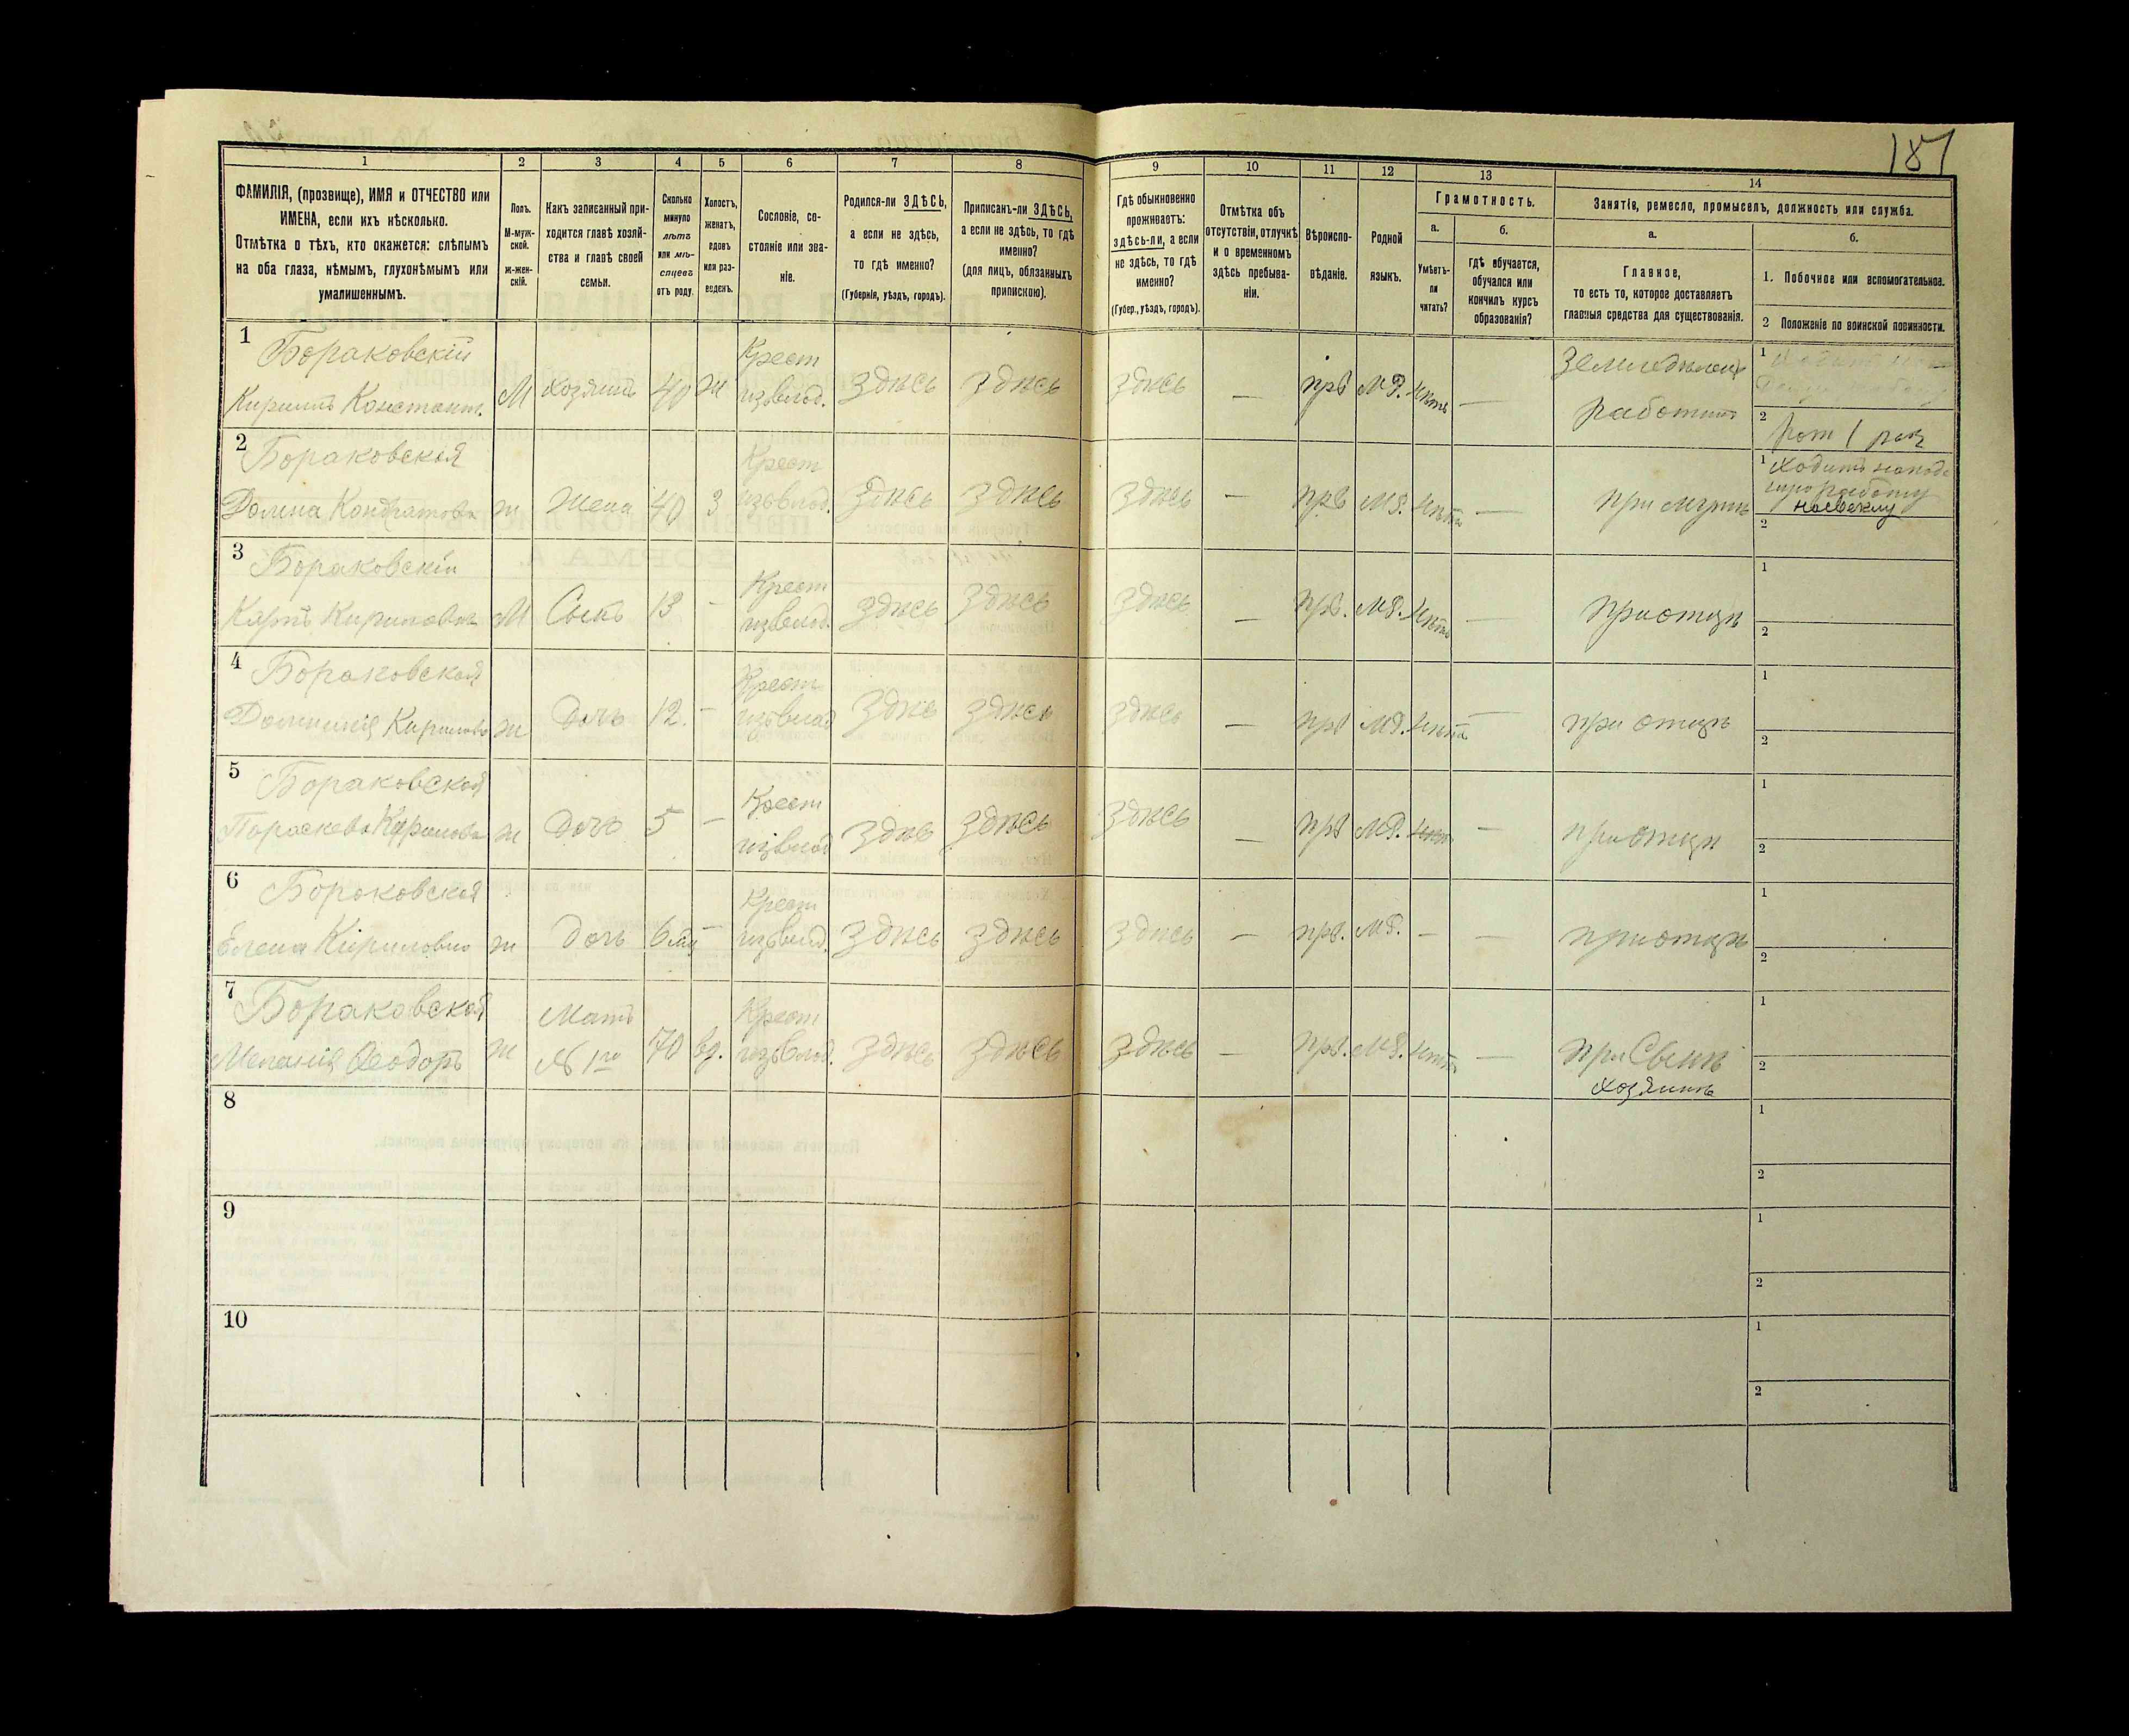 187
1
2
3
4
5
6
7
8
9
10
11
12
13
14
ФАМИЛІЯ, (прозвище), ИМЯ и ОТЧЕСТВО или
ИМЕНА, если ихъ нѣсколько.
Отмѣтка о тѣхъ, кто окажется: слѣпымъ
на оба глаза, нѣмымъ, глухонѣмымъ или
умалишеннымъ.
Полъ.
М-муж-
ской.
ж-жен-
скій.
Какъ записанный при-
ходится главѣ хозяй-
ства и главѣ своей
семьи.
Сколько
минуло
лѣтъ
или мѣ-
сяцевъ
отъ роду.
Холостъ,
женатъ,
вдовъ
или раз-
веденъ.
Сословіе, со-
стояніе или зва-
ніе.
Родился-ли ЗДѢСЬ,
а если не здѣсь,
то гдѣ именно?
(Губернія, уѣздъ, городъ).
Приписанъ-ли ЗДѢСЬ,
а если не здѣсь, то гдѣ
именно?
(для лицъ, обязанныхъ
припискою).
Гдѣ обыкновенно
проживаетъ:
здѣсь-ли, а если
не здѣсь, то гдѣ
именно?
(Губер., уѣздъ, городъ).
Отмѣтка объ
отсутствіи, отлучкѣ
и о временномъ
здѣсь пребыва-
ніи.
Вѣроиспо-
вѣданіе.
Родной
языкъ.
Грамотность.
а.
Умѣетъ-
ли
читать?
б.
гдѣ обучается,
обучался или
кончилъ курсъ
образованія?
Занятіе, ремесло, промыселъ, должность или служба.
а.
Главное,
то есть то, которое доставляетъ
главныя средства для существованія.
б.
1. Побочное или вспомогательное.
2 Положеніе по воинской повинности.
1 Бораковскій
Кирилъ Констант. М хозяинъ 40 ж Крест из влад. Здѣсь Здѣсь Здѣсь — прв М.Р. нѣтъ —
работникъ
1
2
2 Бораковская
Кондратова ж Жена 40 З Крест из влад. Здѣсь Здѣсь Здѣсь — прв М.Р. нѣтъ — при мужѣ
1 Ходитъ
работу
2
3 Бораковскій
Карпъ Кириловъ М Сынъ 13 — Крест из влад. Здѣсь Здѣсь Здѣсь — прв. М.Р. нѣтъ — при отцѣ
1
2
4 Бораковская
Кирилова ж Дочь 12. — Крест из влад Здѣсь Здѣсь Здѣсь — прв М.Р. нѣтъ — при отцѣ
1
2
5 Бораковская
Параскева Кирилова ж Дочь 5 — Крест из влад Здѣсь Здѣсь Здѣсь — прв М.Р. нѣтъ — при отцѣ
1
2
6 Бораковская
Елена Кирилова ж дочь 6 мц — Крест из влад. Здѣсь Здѣсь Здѣсь — прв. М.Р. — — при отцѣ
1
2
7 Бораковская
Меланія Ѳеодоръ ж Мать № 1го 70 вд. Крест из влад. Здѣсь Здѣсь Здѣсь — прв. М.Р. нѣтъ — при Сынѣ
хозяинѣ
1
2
8
1
2
9
1
2
10
1
2